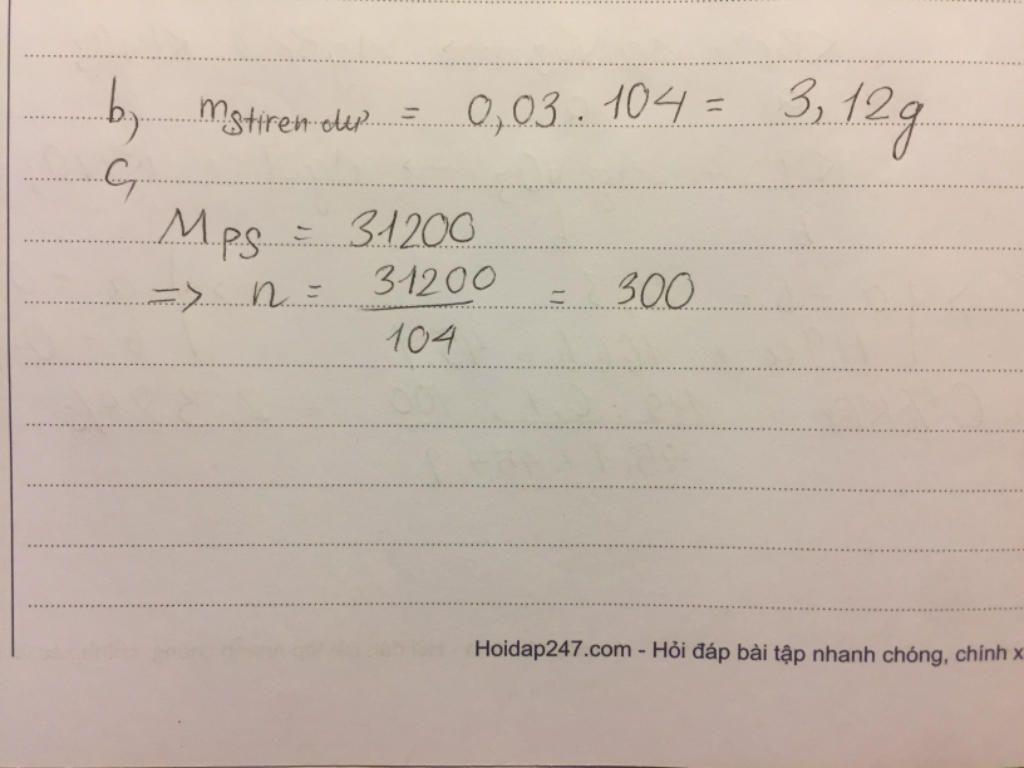 b) mstiren dư = 0,03 . 104 = 3,12g
c,
MPS = 31200
=> n = 31200 / 104 = 300
Hoidap247.com - Hỏi đáp bài tập nhanh chóng, chính x